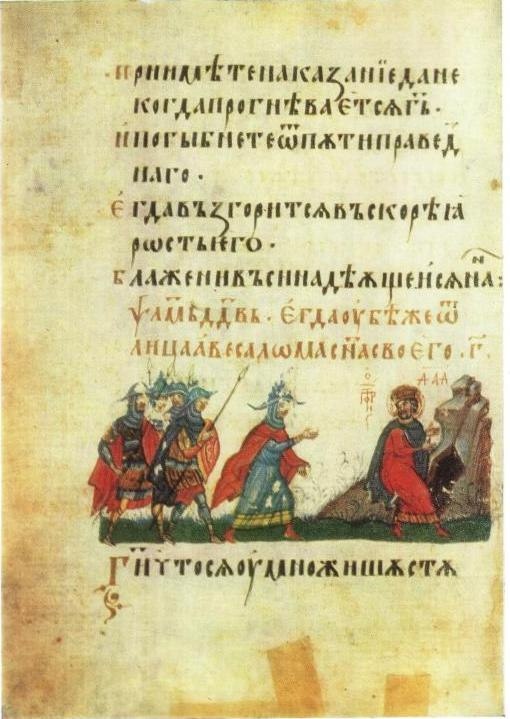 ·приимѣтенаказанїедане
когдапрогнѣваетсѧг҃ь·
ипогыбнетеѿпѫтиправед
наго·
егдавъзгоритсѧвъскорѣꙗ
ростьего·
блаженивъсинадѣѧщеисѧнан҃ъ:
ѱл҃мьдд҃вь·егдаоубѣжеѿ
лицаавесаломасн҃асвоего·г҃·
Ги҃чтосѧоумножишѧстѫ